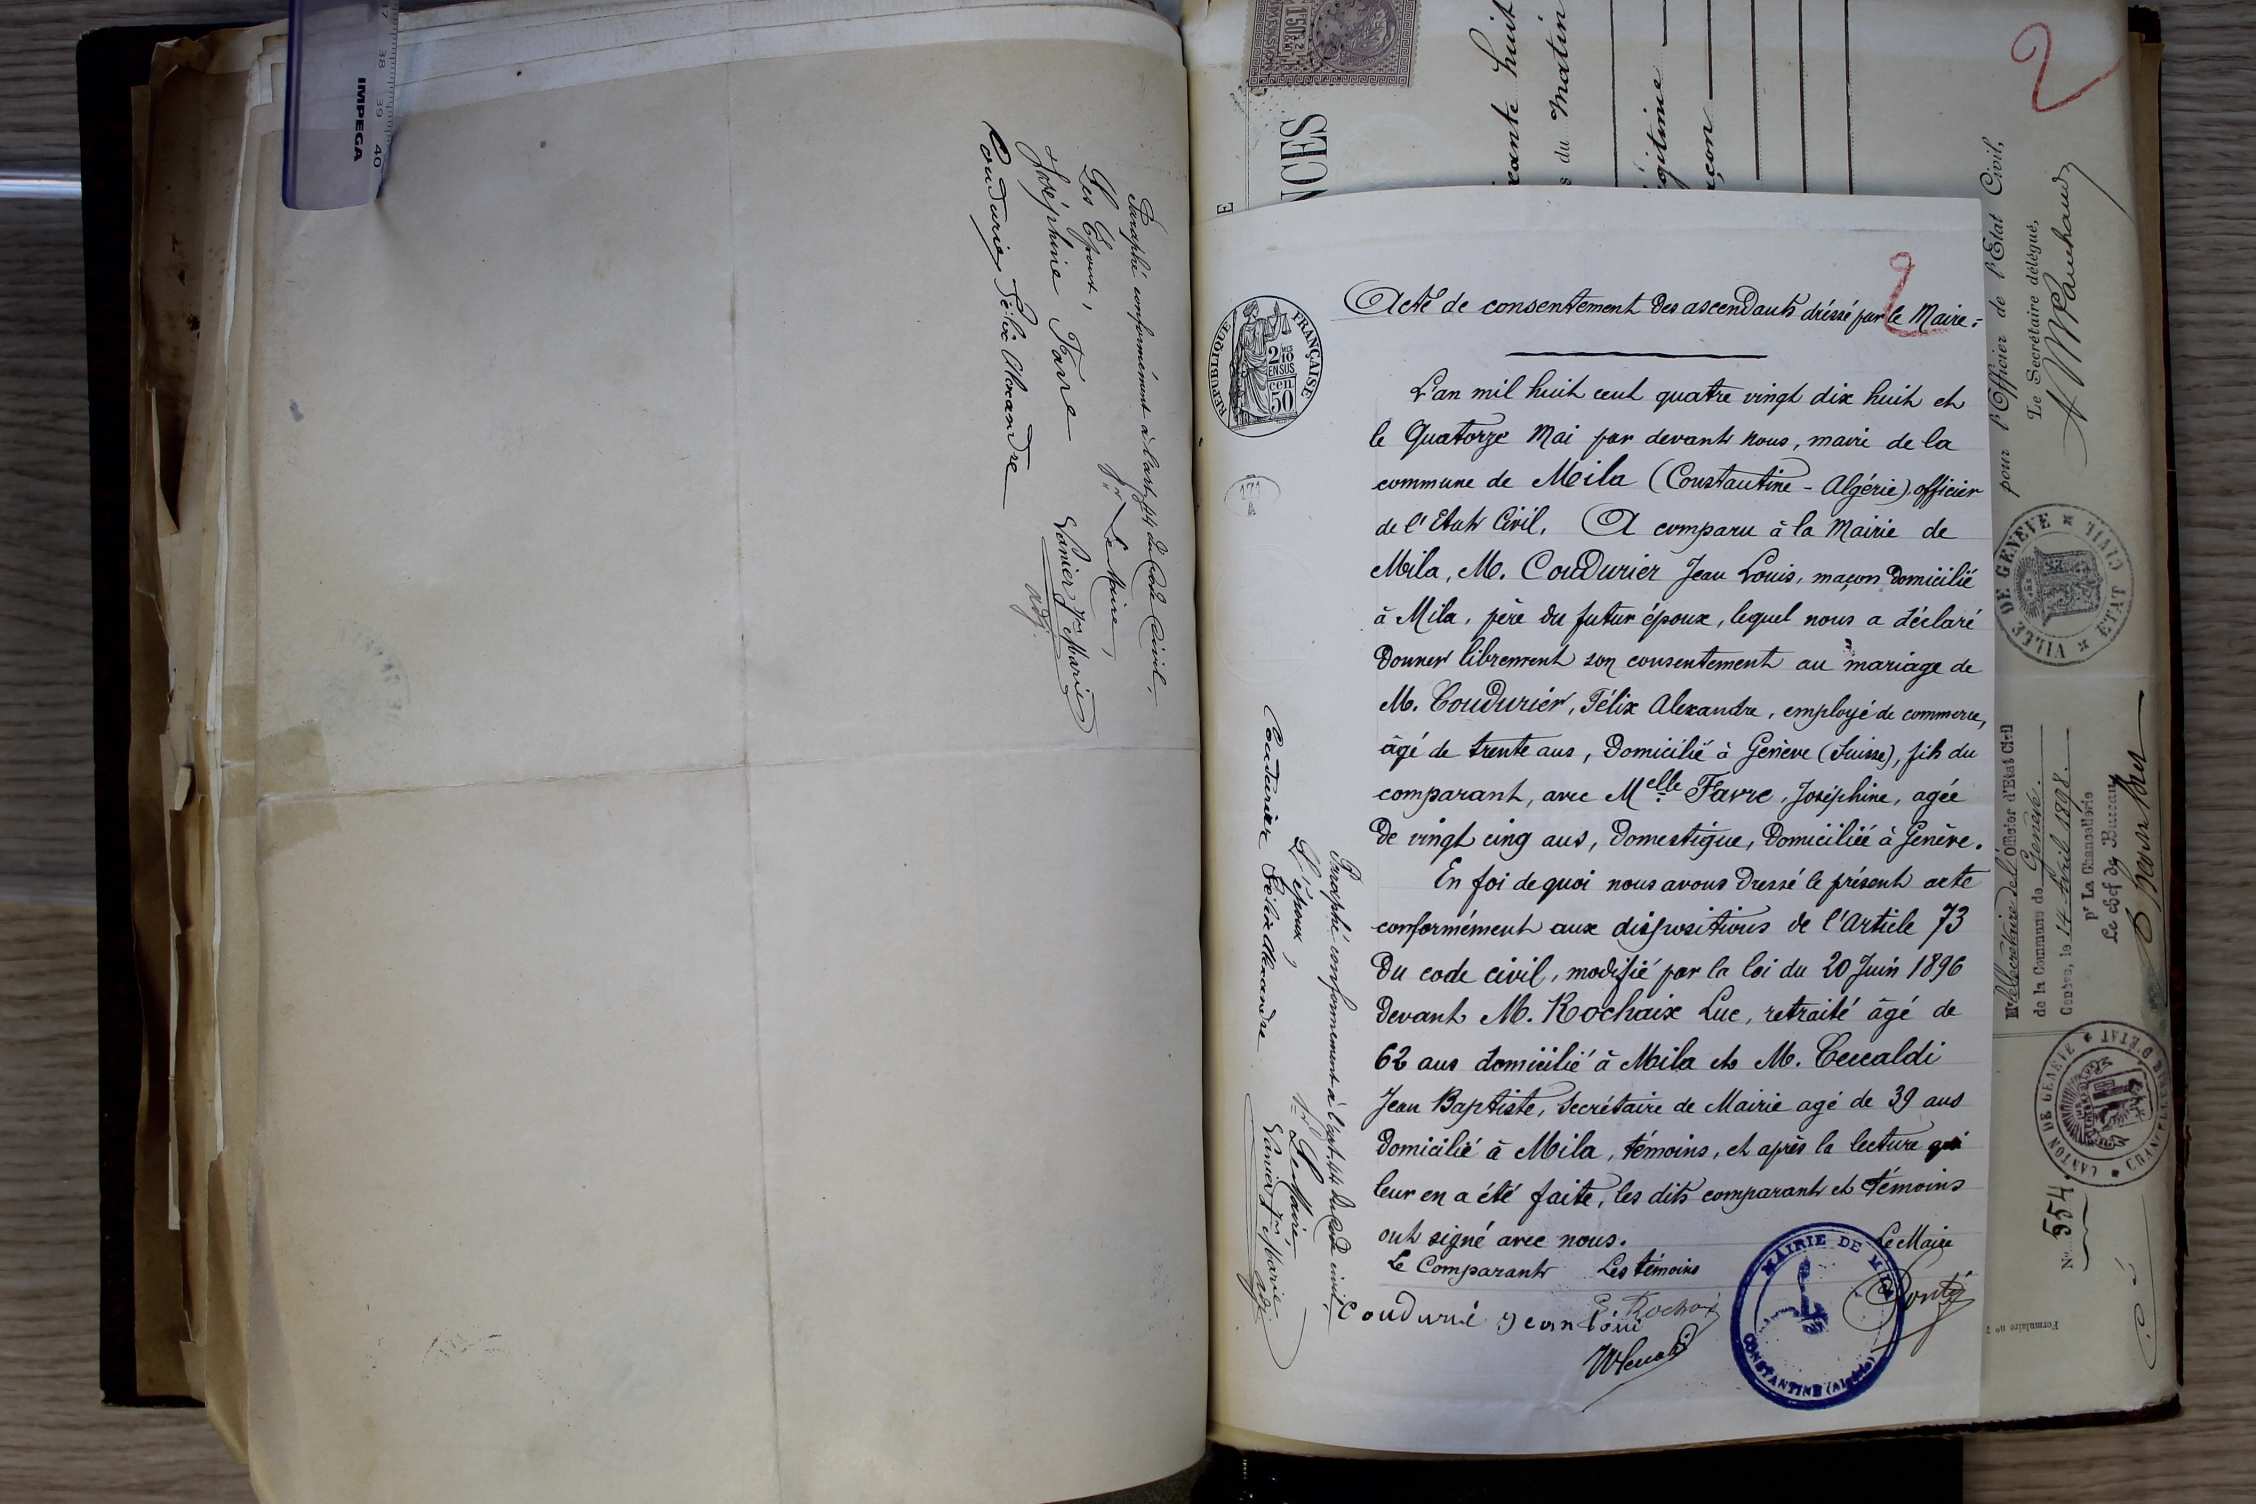 Paraphé conformément à l'art. 44 du Code Civil.
Les Epoux,
Pr Le Maire,
Joséphine Favre
Vanier Jn Marie
adj.
Coudurier Félix Alexandre
IMPEGA
37 38 39 40
150
NCES
E
xante huit
s du Matin
gitime
çon
2
pour l'Officier de l'Etat Civil,
Le Secrétaire délégué,
VILLE DE GENEVE
ETAT CIVIL
de l'Officier d'Etat Civil
de la Commune de Genève.
Genève, le 14 Avril 1898.
pr La Chancellerie
Le chef de Bureau
CANTON DE GENEVE
CHANCELLERIE D'ETAT
No 554
Formulaire no 7
2
Acte de consentement des ascendants dréssé par le Maire:
REPUBLIQUE FRANÇAISE
2 MES 10
EN SUS
cen
50
171
L'an mil huit cent quatre vingt dix huit et
le Quatorze Mai par devant nous, maire de la
commune de Mila (Constantine - Algérie) officier
de l'Etat Civil, A comparu à la Mairie de
Mila, M. Coudurier Jean Louis, maçon domicilié
à Mila, père du futur époux, lequel nous a déclaré
donner librement son consentement au mariage de
M. Coudurier, Félix Alexandre, employé de commerce,
âgé de trente ans, domicilié à Genève (Suisse), fils du
comparant, avec Melle Favre, Joséphine, agée
de vingt cinq ans, domestique, domiciliée à Genève.
En foi de quoi nous avons dressé le présent acte
conformément aux dispositions de l'article 73
du code civil, modifié par la loi du 20 Juin 1896
devant M. Rochaix Luc, retraité âgé de
62 ans domicilié à Mila et M. Ceccaldi
Jean Baptiste, Secrétaire de Mairie agé de 39 ans
domicilié à Mila, témoins, et après la lecture qui
leur en a été faite, les dits comparant et témoins
ont signé avec nous.
Le Maire
Le Comparant Les témoins
Coudurié Jean Loui
MAIRIE DE MILA
CONSTANTINE (Algérie)
Paraphé conformément à l'art. 44 du Code civil,
L'époux,
Pr Le Maire,
Coudurier Félix Alexandre
Vanier Jn Marie
adj.